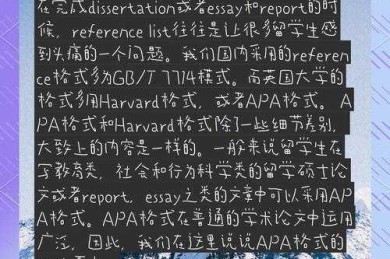 在完成dissertation或者essay和report的时
候，reference list往往是让很多留学生感
到头痛的一个问题。我们国内采用的referen
ce格式多为GB/T 7714模式。而英国大学的
格式多用Harvard格式，或者APA格式。A
PA格式和Harvard格式除了一些细节差别，
大致上的内容是一样的。一般来说留学生在
写教育类，社会和行为科学类的留学硕士论
文或者report，essay之类的文章中可以采用AP
A格式。APA格式在普通的学术论文中运用
广泛，因此，我们在这里说说APA格式的